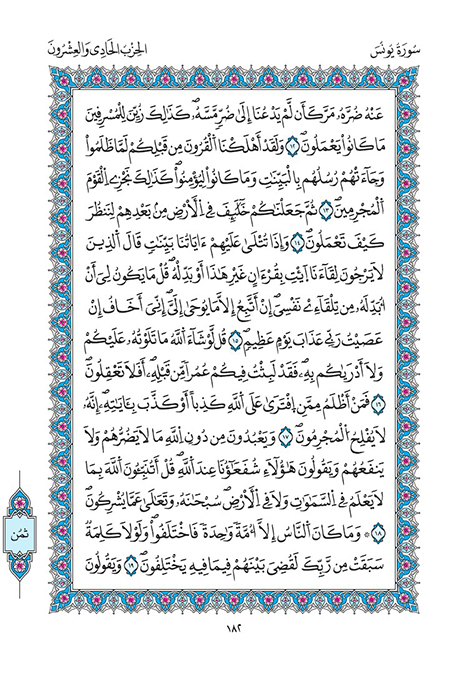 سُورَةُ يُونُسَ
الحِزْبُ الحَادِي وَالعِشْرُونَ
عَنْهُ ضُرَّهُۥ مَرَّ كَأَن لَّمْ يَدْعُنَا إِلَىٰ ضُرٍّ مَّسَّهُۥ كَذَٰلِكَ زُيِّنَ لِلْمُسْرِفِينَ
مَا كَانُوا۟ يَعْمَلُونَ ١٢ وَلَقَدْ أَهْلَكْنَا ٱلْقُرُونَ مِن قَبْلِكُمْ لَمَّا ظَلَمُوا۟
وَجَآءَتْهُمْ رُسُلُهُم بِالْبَيِّنَٰتِ وَمَا كَانُوا۟ لِيُؤْمِنُوا۟ كَذَٰلِكَ نَجْزِى ٱلْقَوْمَ
ٱلْمُجْرِمِينَ ١٣ ثُمَّ جَعَلْنَٰكُمْ خَلَٰٓئِفَ فِى ٱلْأَرْضِ مِنۢ بَعْدِهِمْ لِنَنظُرَ
كَيْفَ تَعْمَلُونَ ١٤ وَإِذَا تُتْلَىٰ عَلَيْهِمْ ءَايَاتُنَا بَيِّنَٰتٍ قَالَ ٱلَّذِينَ
لَا يَرْجُونَ لِقَآءَنَا ٱئْتِ بِقُرْءَانٍ غَيْرِ هَٰذَا أَوْ بَدِّلْهُ قُلْ مَا يَكُونُ لِىَ أَنْ
أُبَدِّلَهُۥ مِن تِلْقَآءِىْ نَفْسِىَ إِنْ أَتَّبِعُ إِلَّا مَا يُوحَىٰ إِلَىَّ إِنِّىَ أَخَافُ إِنْ
عَصَيْتُ رَبِّى عَذَابَ يَوْمٍ عَظِيمٍ ١٥ قُل لَّوْ شَآءَ ٱللَّهُ مَا تَلَوْتُهُۥ عَلَيْكُمْ
وَلَا أَدْرَىٰكُم بِهِۦ فَقَدْ لَبِثْتُ فِيكُمْ عُمُرًا مِّن قَبْلِهِۦ أَفَلَا تَعْقِلُونَ
١٦ فَمَنْ أَظْلَمُ مِمَّنِ ٱفْتَرَىٰ عَلَى ٱللَّهِ كَذِبًا أَوْ كَذَّبَ بِـَٔايَٰتِهِۦ إِنَّهُۥ
لَا يُفْلِحُ ٱلْمُجْرِمُونَ ١٧ وَيَعْبُدُونَ مِن دُونِ ٱللَّهِ مَا لَا يَضُرُّهُمْ وَلَا
يَنفَعُهُمْ وَيَقُولُونَ هَٰٓؤُلَآءِ شُفَعَٰٓؤُنَا عِندَ ٱللَّهِ قُلْ أَتُنَبِّـُٔونَ ٱللَّهَ بِمَا
لَا يَعْلَمُ فِى ٱلسَّمَٰوَٰتِ وَلَا فِى ٱلْأَرْضِ سُبْحَٰنَهُۥ وَتَعَٰلَىٰ عَمَّا يُشْرِكُونَ
١٨ ۞ وَمَا كَانَ ٱلنَّاسُ إِلَّا أُمَّةً وَٰحِدَةً فَٱخْتَلَفُوا۟ وَلَوْلَا كَلِمَةٌ
سَبَقَتْ مِن رَّبِّكَ لَقُضِىَ بَيْنَهُمْ فِيمَا فِيهِ يَخْتَلِفُونَ ١٩ وَيَقُولُونَ
ثمن
١٨٢